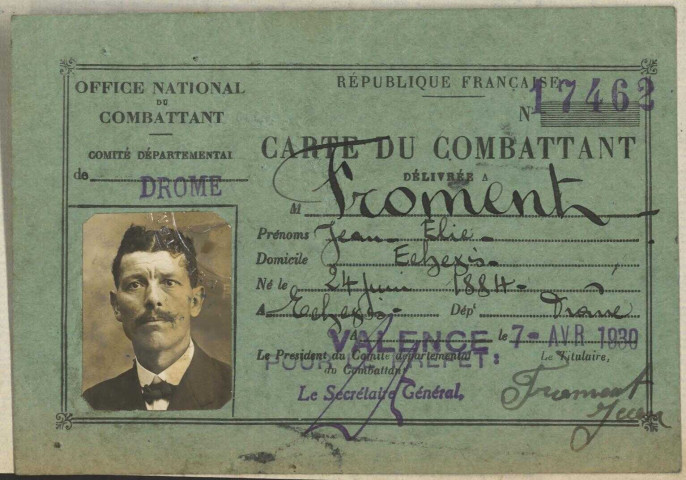 OFFICE NATIONAL
DU
COMBATTANT
COMITÉ DÉPARTEMENTAL
de DROME
RÉPUBLIQUE FRANÇAISE
N° 17462
CARTE DU COMBATTANT
DÉLIVRÉE A
M Froment
Prénoms Jean-Elie-
Domicile Echevis-
Né le 24 juin 1884-
A Echevis- Dépt Drôme
A VALENCE le 7- AVR 1930
Le Président du Comité départemental
du Combattant
POUR LE PREFET:
Le Secrétaire Général,
Le Titulaire,
Froment
Jean